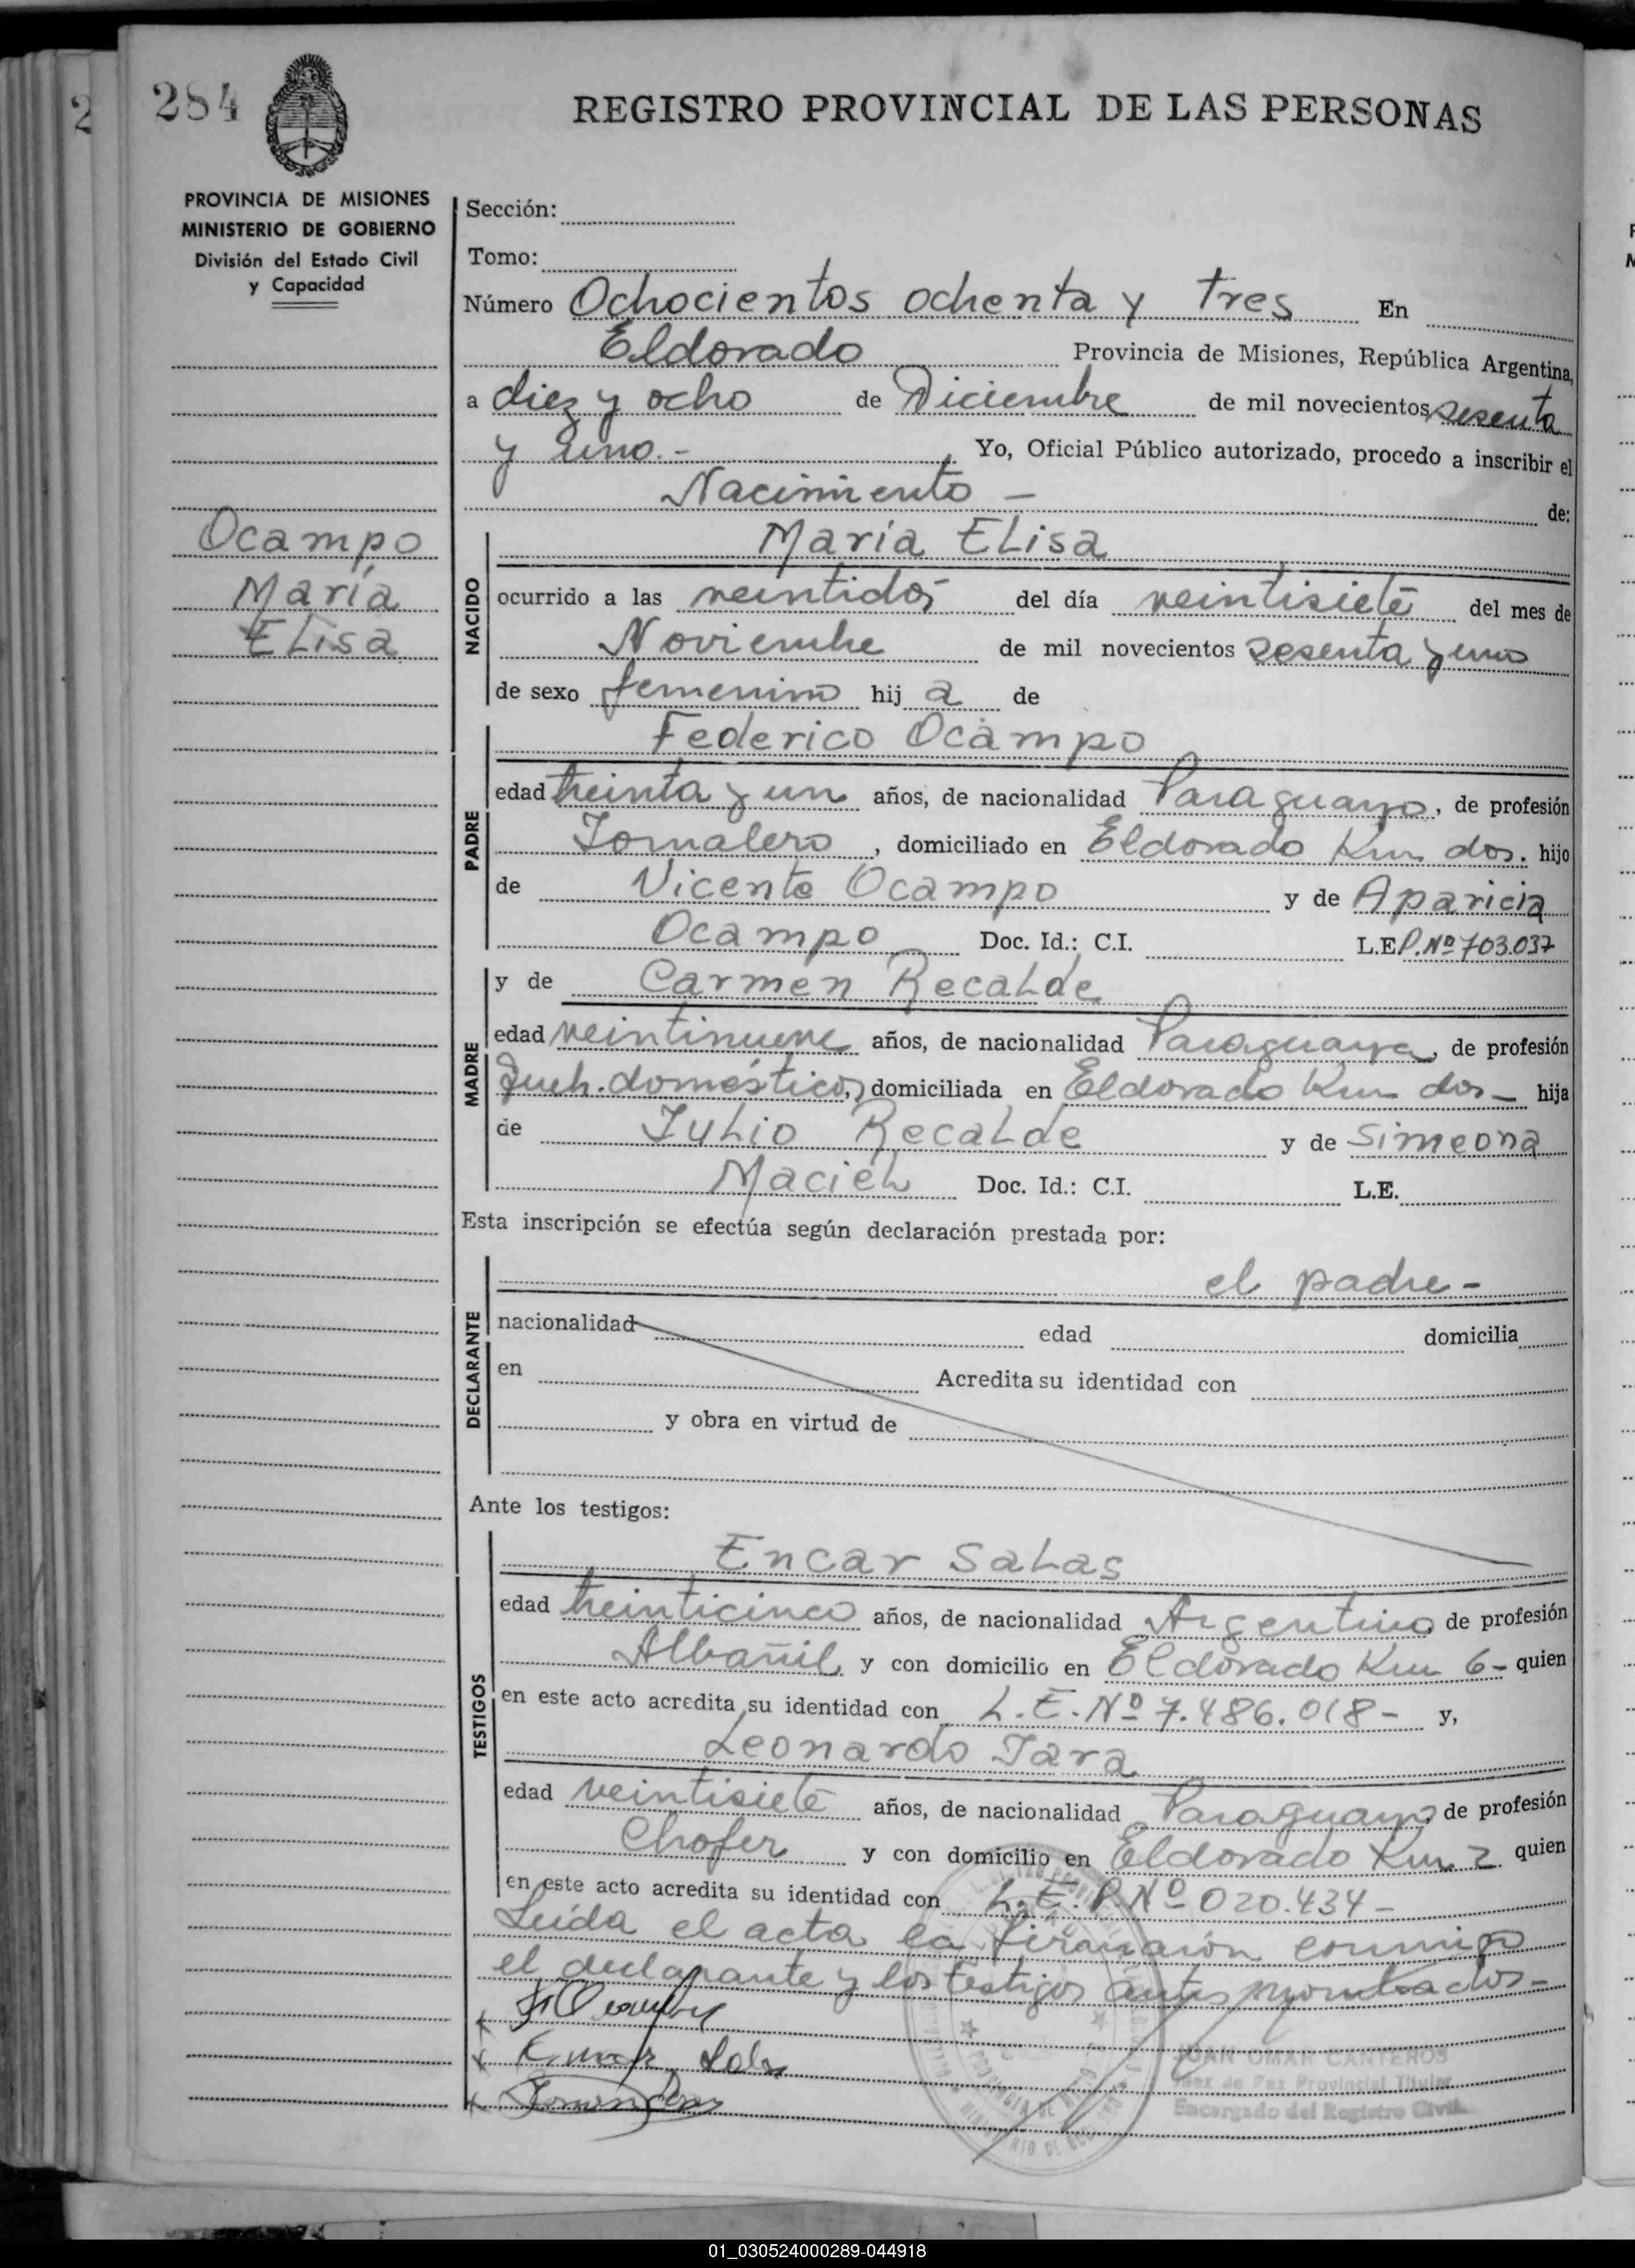 284
REGISTRO PROVINCIAL DE LAS PERSONAS
PROVINCIA DE MISIONES
MINISTERIO DE GOBIERNO
División del Estado Civil
y Capacidad
Ocampo
María
ELisa
Sección:
Tomo:
Número Ochocientos ochenta y tres En
Eldorado Provincia de Misiones, República Argentina,
a diez y ocho de Diciembre de mil novecientos sesenta
y uno.- Yo, Oficial Público autorizado, procedo a inscribir el
Nacimiento - de:
NACIDO
María ELisa
ocurrido a las veintidós del día veintisiete del mes de
Noviembre de mil novecientos sesenta y uno
de sexo femenino hij a de
PADRE
Federico Ocampo
edad treinta y un años, de nacionalidad Paraguayo, de profesión
Jornalero, domiciliado en Eldorado Km dos. hijo
de Vicente Ocampo y de Aparicia
Ocampo Doc. Id.: C.I. L.E.P. Nº 703.037
MADRE
y de Carmen Recalde
edad veintinueve años, de nacionalidad Paraguaya, de profesión
Queh. domésticos, domiciliada en Eldorado Km dos - hija
de Julio Recalde y de Simeona
Maciel Doc. Id.: C.I. L.E.
Esta inscripción se efectúa según declaración prestada por:
DECLARANTE
el padre -
nacionalidad edad domicilia
en Acredita su identidad con
y obra en virtud de
Ante los testigos:
TESTIGOS
Encar Salas
edad treinticinco años, de nacionalidad Argentino de profesión
Albañil y con domicilio en Eldorado Km 6 - quien
en este acto acredita su identidad con L.E. Nº 7.486.018 - y,
Leonardo Jara
edad veintisiete años, de nacionalidad Paraguayo de profesión
Chofer y con domicilio en Eldorado Km 2 quien
en este acto acredita su identidad con L.E.P. Nº 020.434 -
Leída el acta la firman conmigo
el declarante y los testigos antes nombrados -
JUAN OMAR CANTEROS
Juez de Paz Provincial Titular
Encargado del Registro Civil
01_030524000289-044918